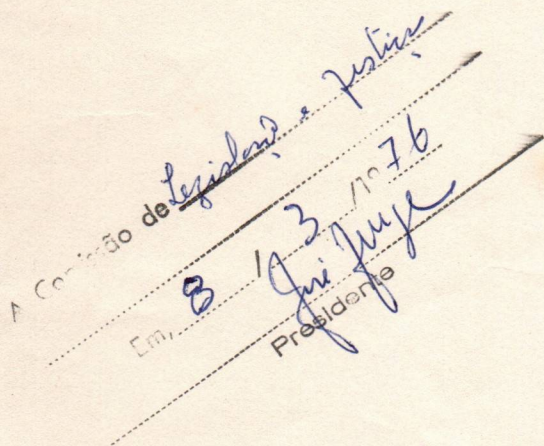 A Comissão de Legislação e Justiça
Em, 8 / 3 /1976
José Jorge
Presidente